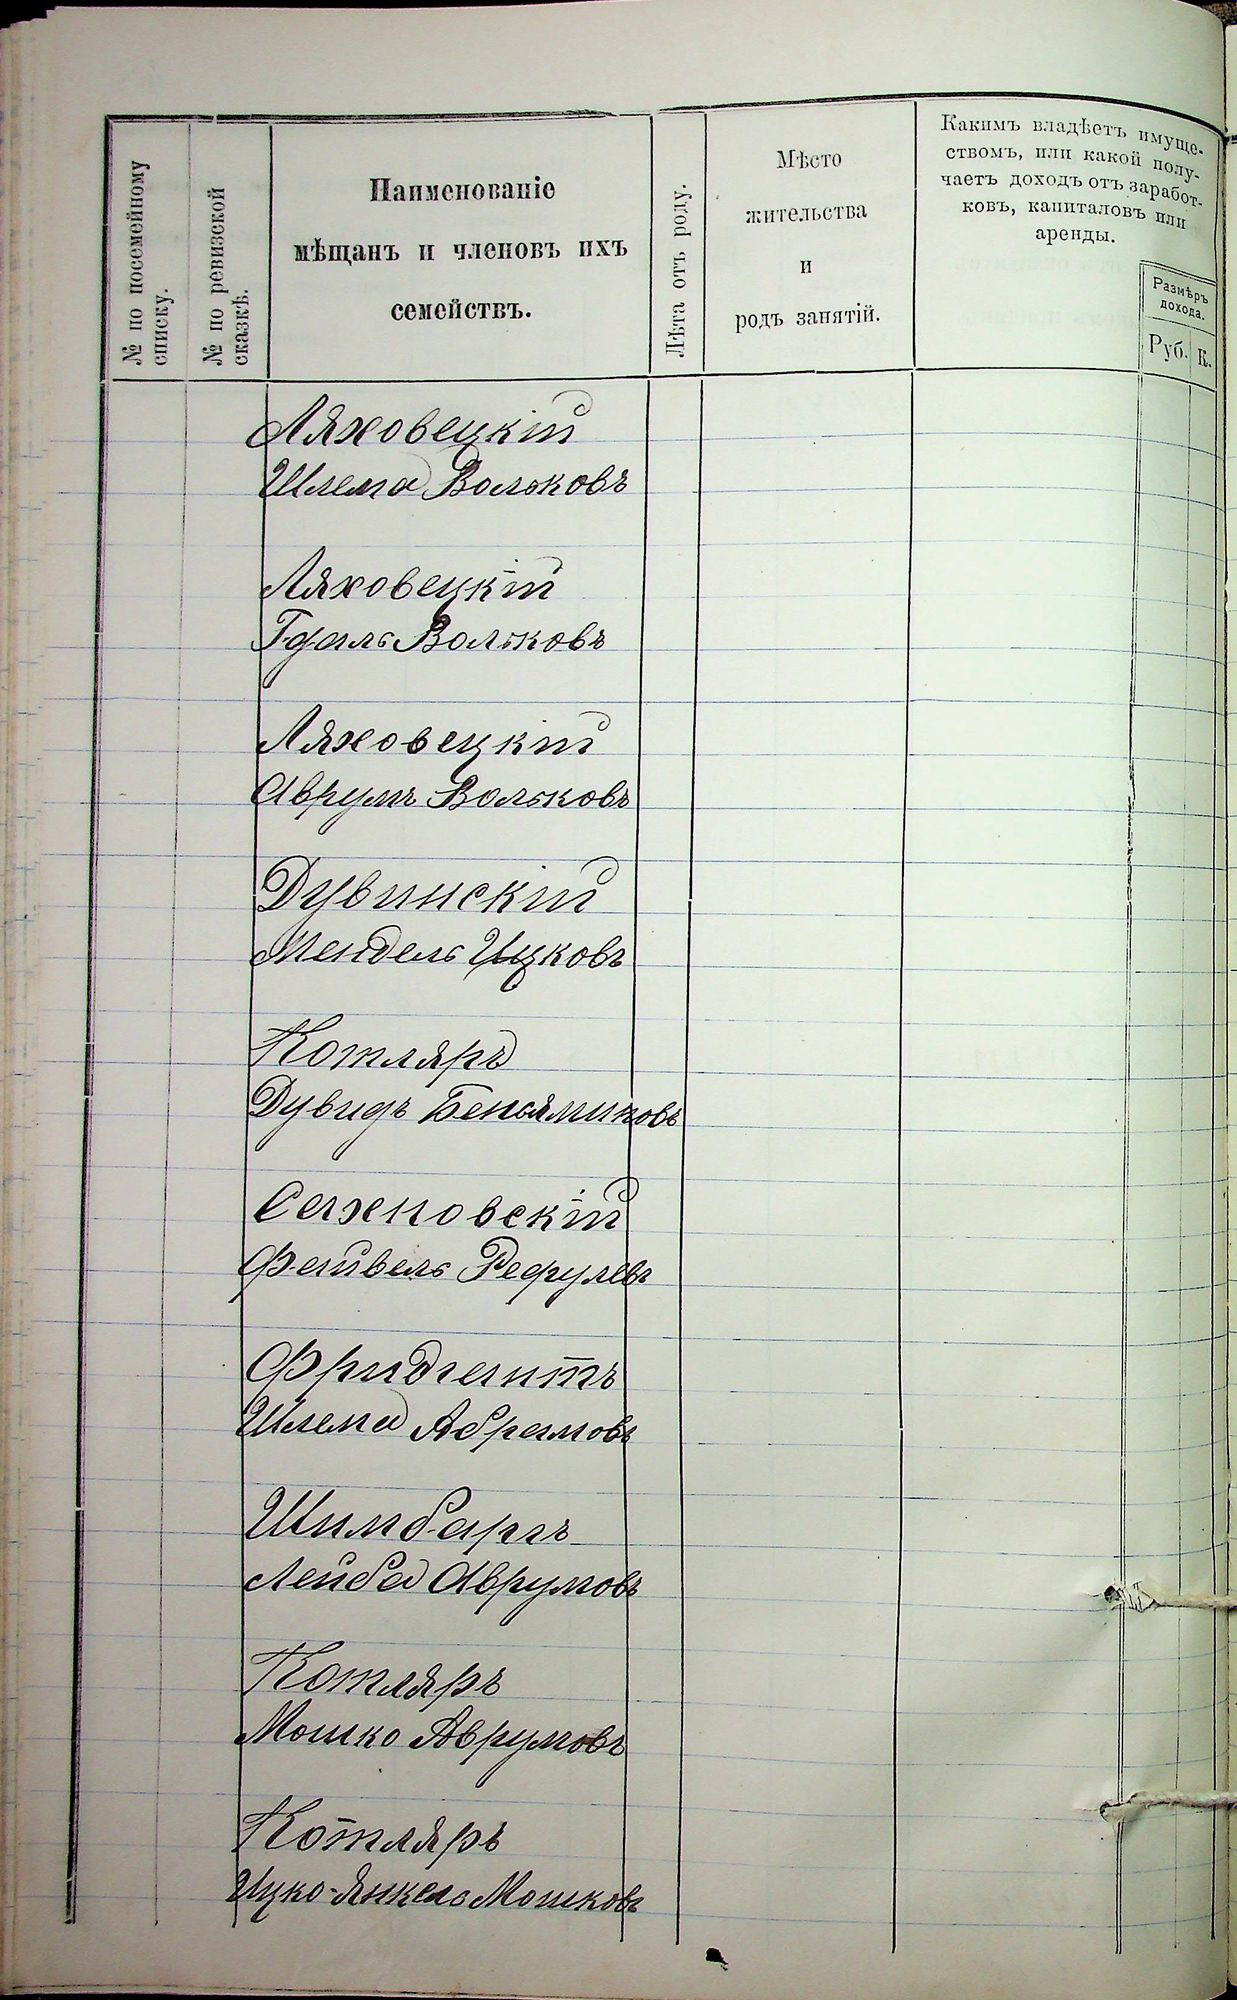 № по посемейному
списку.
№ по ревизской
сказкѣ.
Наименованіе
мѣщанъ и членовъ ихъ
семействъ.
Лѣта отъ роду.
Мѣсто
жительства
и
родъ занятій.
Какимъ владѣетъ имуще-
ствомъ, или какой полу-
чаетъ доходъ отъ заработ-
ковъ, капиталовъ или
аренды.
Размѣръ
дохода.
Руб. К.
Ляховецкій
Шлема Вольковъ
Ляховецкій
Гдаль Вольковъ
Ляховецкій
Аврумъ Вольковъ
Дувинскій
Мендель Ицковъ
Котляръ
Дувидъ Беньяминовъ
Сахновскій
Файвель Рефулевъ
Фридгантъ
Шлема Абрамовъ
Шимбаргъ
Лейба Аврумовъ
Котляръ
Мошко Аврумовъ
Котляръ
Ицко-Янкель Мошковъ